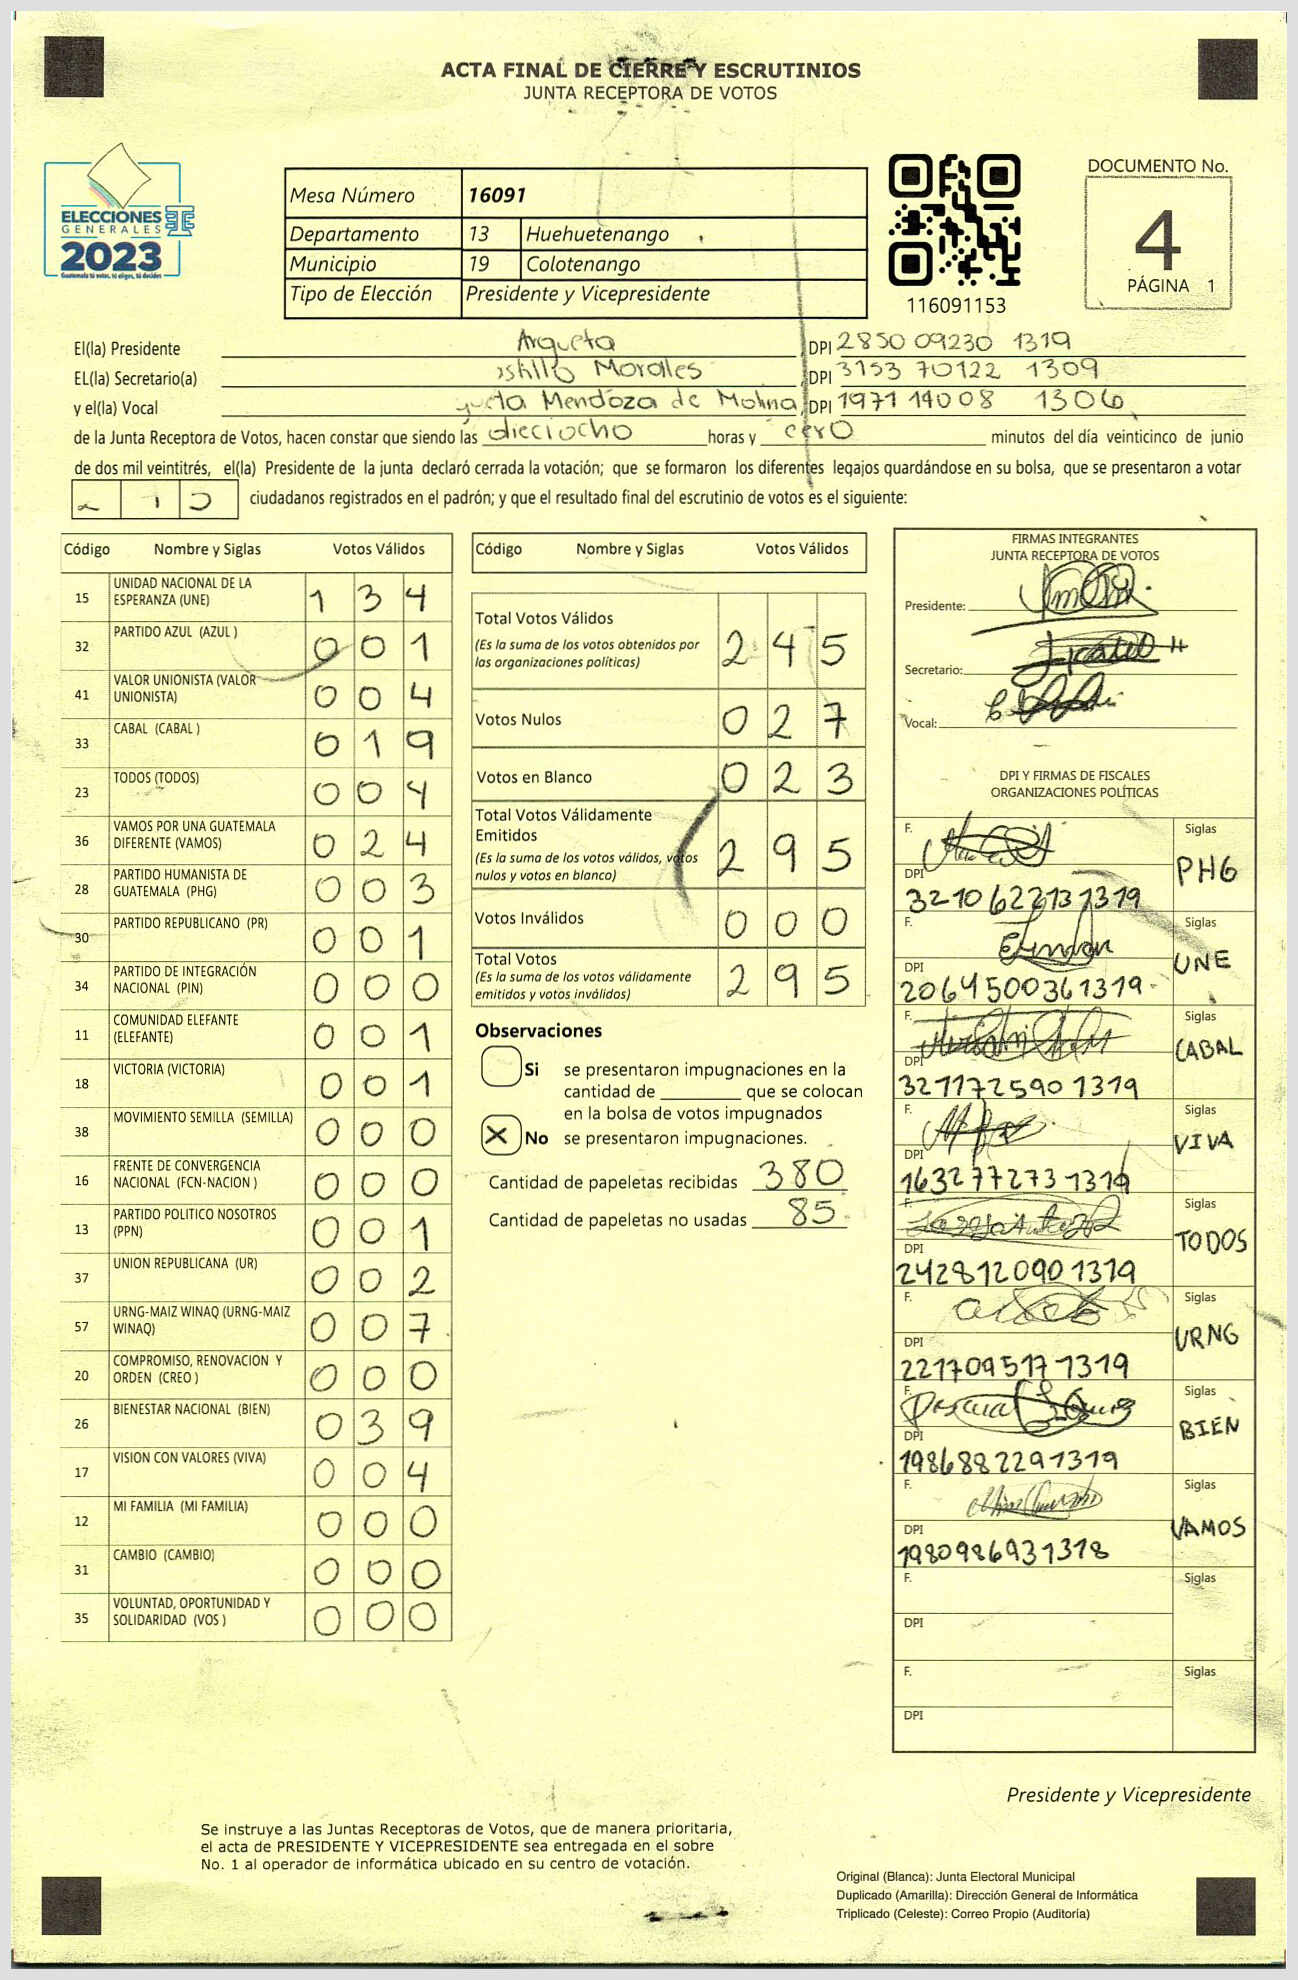 ACTA FINAL DE CIERRE Y ESCRUTINIOS
JUNTA RECEPTORA DE VOTOS
ELECCIONES
GENERALES
2023
Guatemala tú votas, tú eliges, tú decides
Mesa Número 16091
Departamento 13 Huehuetenango
Municipio 19 Colotenango
Tipo de Elección Presidente y Vicepresidente
116091153
DOCUMENTO No.
4
PÁGINA 1
El(la) Presidente Argueta, DPI 2850 09230 1319
EL(la) Secretario(a) Morales, DPI 3153 70122 1309
y el(la) Vocal Mendoza de Molina, DPI 1971 14008 1306
de la Junta Receptora de Votos, hacen constar que siendo las dieciocho horas y cero minutos del día veinticinco de junio
de dos mil veintitrés, el(la) Presidente de la junta declaró cerrada la votación; que se formaron los diferentes legajos guardándose en su bolsa, que se presentaron a votar
ciudadanos registrados en el padrón; y que el resultado final del escrutinio de votos es el siguiente:
Código Nombre y Siglas Votos Válidos
15 UNIDAD NACIONAL DE LA ESPERANZA (UNE) 1 3 4
32 PARTIDO AZUL (AZUL ) 0 0 1
41 VALOR UNIONISTA (VALOR UNIONISTA) 0 0 4
33 CABAL (CABAL ) 0 1 9
23 TODOS (TODOS) 0 0 4
36 VAMOS POR UNA GUATEMALA DIFERENTE (VAMOS) 0 2 4
28 PARTIDO HUMANISTA DE GUATEMALA (PHG) 0 0 3
30 PARTIDO REPUBLICANO (PR) 0 0 1
34 PARTIDO DE INTEGRACIÓN NACIONAL (PIN) 0 0 0
11 COMUNIDAD ELEFANTE (ELEFANTE) 0 0 1
18 VICTORIA (VICTORIA) 0 0 1
38 MOVIMIENTO SEMILLA (SEMILLA) 0 0 0
16 FRENTE DE CONVERGENCIA NACIONAL (FCN-NACION ) 0 0 0
13 PARTIDO POLITICO NOSOTROS (PPN) 0 0 1
37 UNION REPUBLICANA (UR) 0 0 2
57 URNG-MAIZ WINAQ (URNG-MAIZ WINAQ) 0 0 7
20 COMPROMISO, RENOVACION Y ORDEN (CREO ) 0 0 0
26 BIENESTAR NACIONAL (BIEN) 0 3 9
17 VISION CON VALORES (VIVA) 0 0 4
12 MI FAMILIA (MI FAMILIA) 0 0 0
31 CAMBIO (CAMBIO) 0 0 0
35 VOLUNTAD, OPORTUNIDAD Y SOLIDARIDAD (VOS ) 0 0 0
Código Nombre y Siglas Votos Válidos
Total Votos Válidos 2 4 5
(Es la suma de los votos obtenidos por
las organizaciones políticas)
Votos Nulos 0 2 7
Votos en Blanco 0 2 3
Total Votos Válidamente
Emitidos 2 9 5
(Es la suma de los votos válidos, votos
nulos y votos en blanco)
Votos Inválidos 0 0 0
Total Votos 2 9 5
(Es la suma de los votos válidamente
emitidos y votos inválidos)
Observaciones
Si se presentaron impugnaciones en la
cantidad de ________ que se colocan
en la bolsa de votos impugnados
X No se presentaron impugnaciones.
Cantidad de papeletas recibidas 380
Cantidad de papeletas no usadas 85
FIRMAS INTEGRANTES
JUNTA RECEPTORA DE VOTOS
Presidente:
Secretario:
Vocal:
DPI Y FIRMAS DE FISCALES
ORGANIZACIONES POLÍTICAS
F. Siglas
DPI PHG
3210622131319
F. Siglas
DPI UNE
2064500361319
F. Siglas
DPI CABAL
3211725901319
F. Siglas
DPI VIVA
1632772731319
F. Siglas
DPI TODOS
2428120901319
F. Siglas
DPI URNG
2217095171319
F. Siglas
DPI BIEN
1986882291319
F. Siglas
DPI VAMOS
1980986931318
F. Siglas
DPI
F. Siglas
DPI
Presidente y Vicepresidente
Se instruye a las Juntas Receptoras de Votos, que de manera prioritaria,
el acta de PRESIDENTE Y VICEPRESIDENTE sea entregada en el sobre
No. 1 al operador de informática ubicado en su centro de votación.
Original (Blanca): Junta Electoral Municipal
Duplicado (Amarilla): Dirección General de Informática
Triplicado (Celeste): Correo Propio (Auditoría)